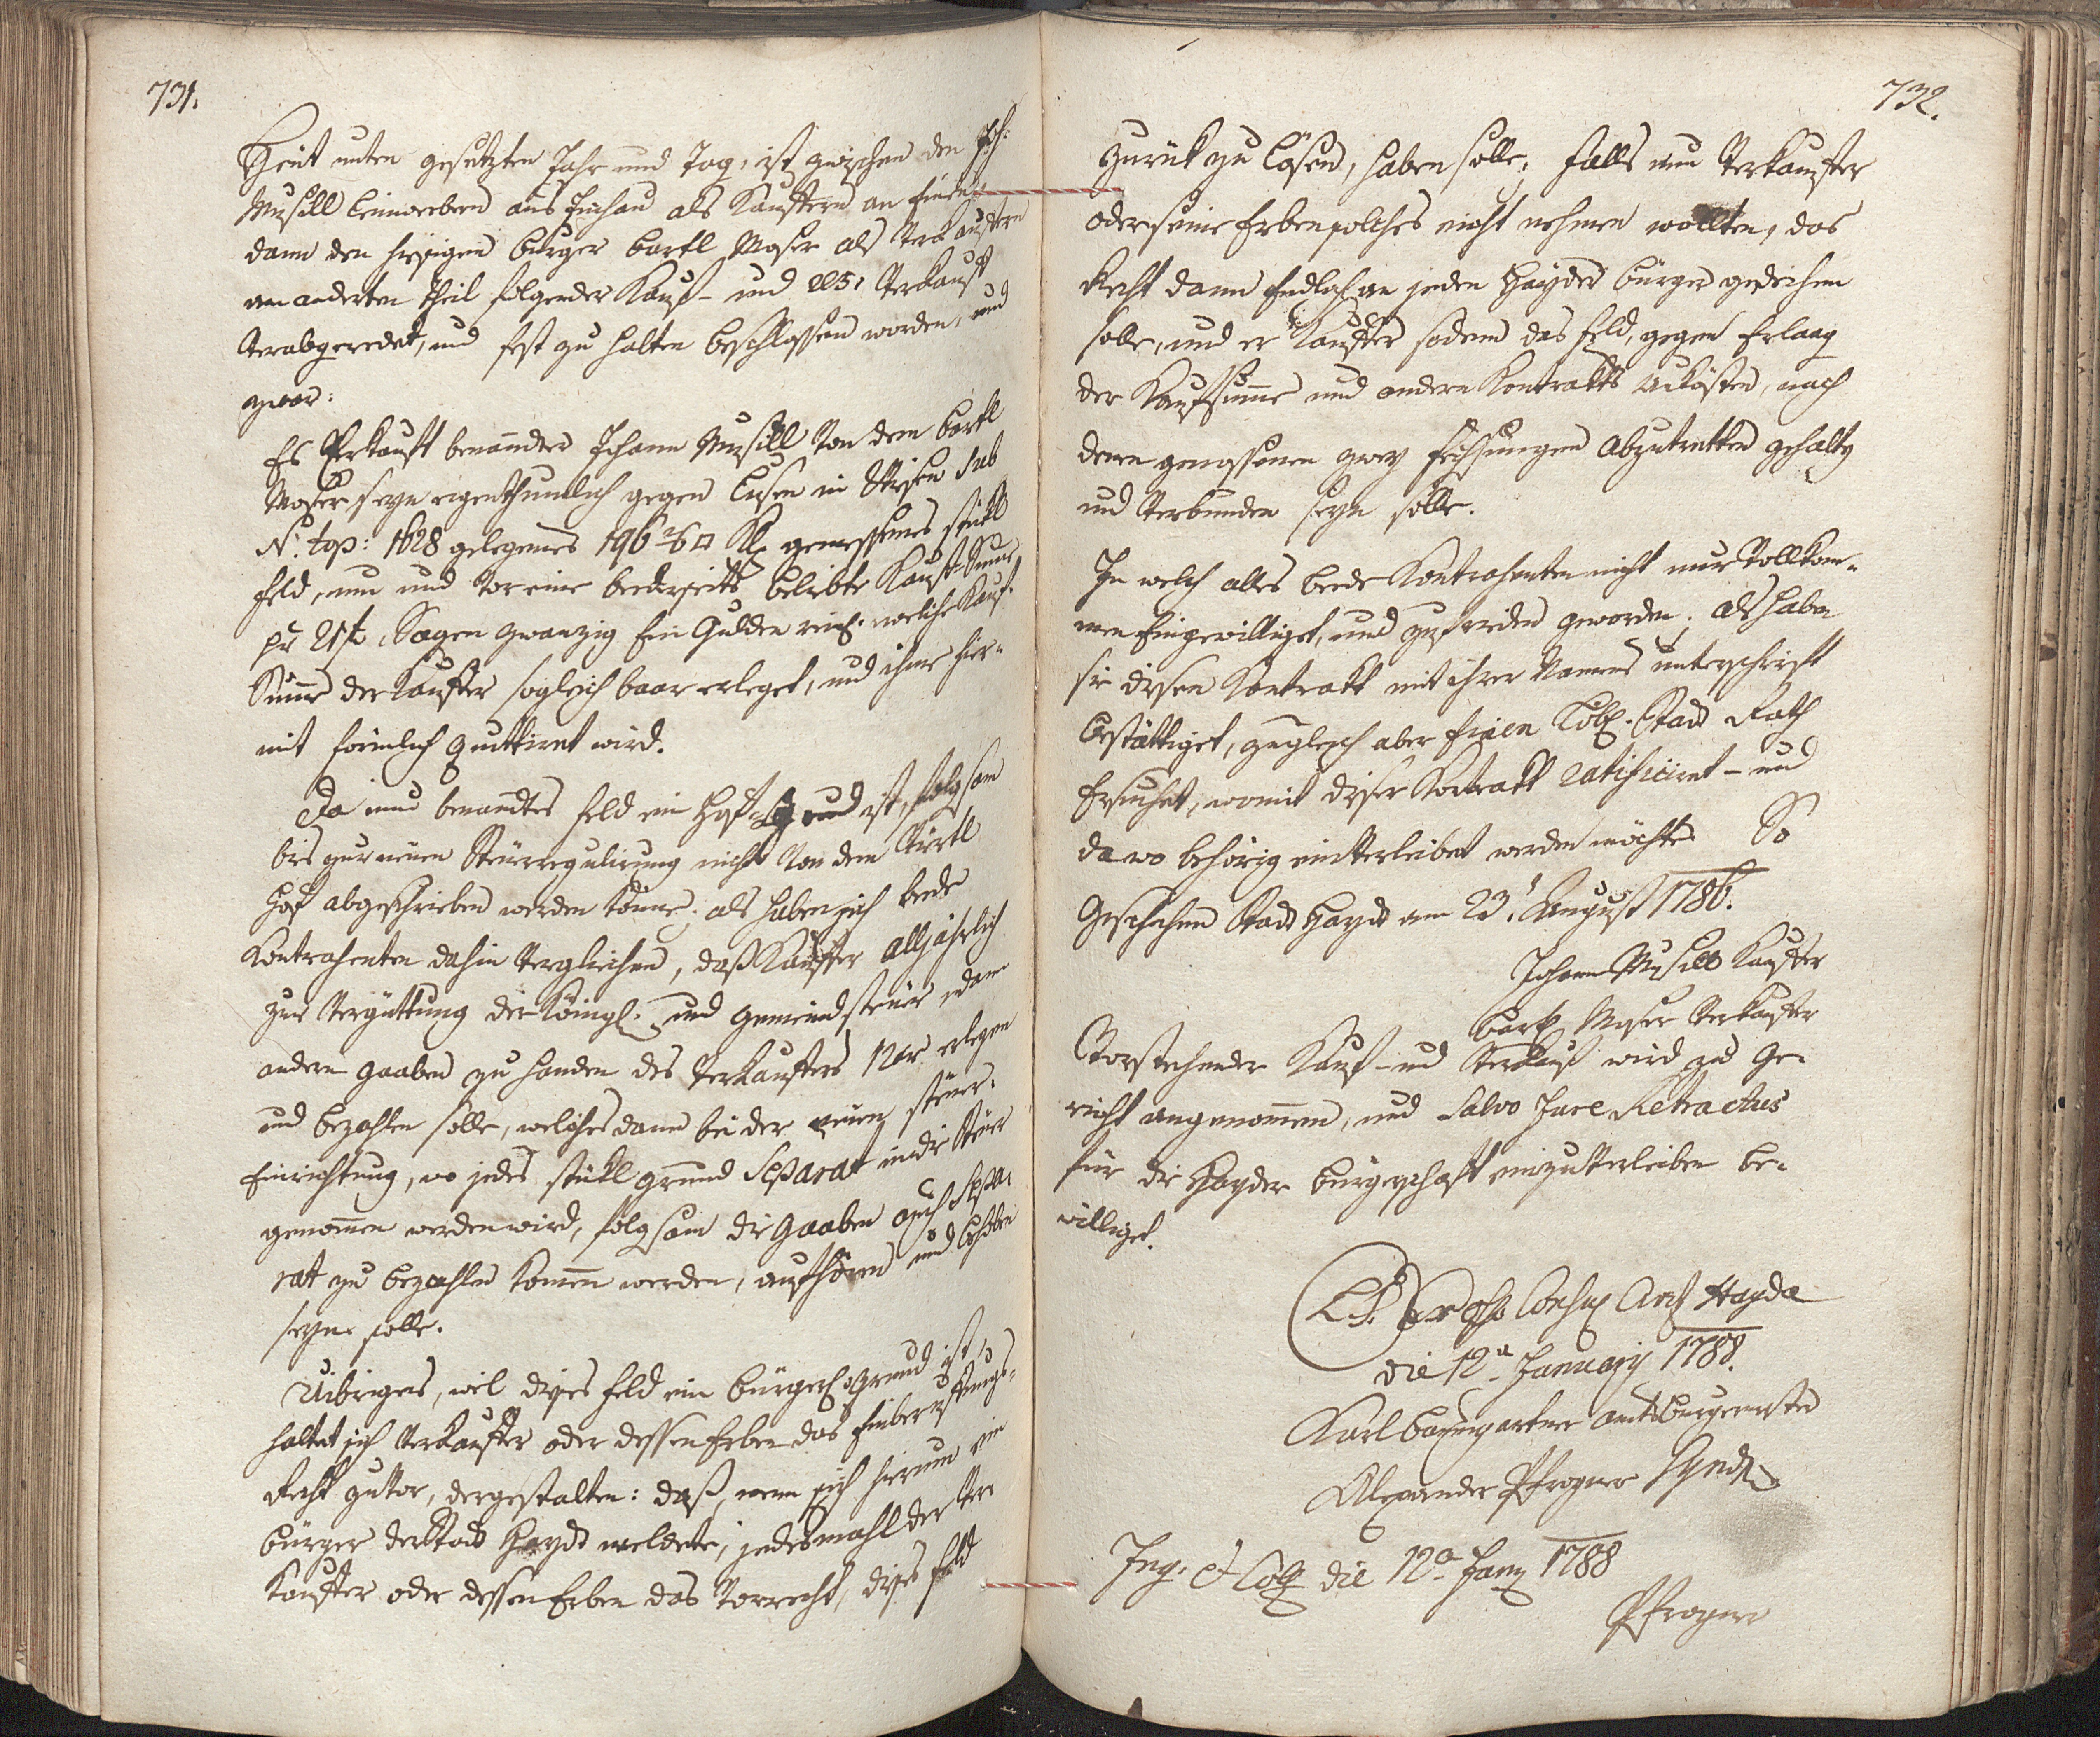 731.
Heut unten gesetzten Jahr und Tag, ist zwischen den Joh:
Musill Leinwebern aus als Kauffern an Einen
dann den hiesigen burger bartl Moser als Verkauffern
am anderten Theil folgender Kauf- und Verkauf
verabgeredet, und fest zu halten beschlossen worden, und
zwar:
Es Verkauft benannter Johann Musill Von dem bartl
Moser seyn eigenthumlich gegen Lusen in sub
N. top: 1628 gelegenes 196 2/6 □ Kl. gemessenes stükl
feld, um und vor eine beederseits beliebte Kauf-Summe
pr 21 f, Sagen zwanzig Ein Gulden welche Kauf-
Summe der Kauffer sogleich baar erleget, und ihme hier-
mit förmlich quittiret wird.
Da nun benanntes feld ein Hof-Grund ist, folgsam
bis zur neuen Steurregulirung nicht Von dem Viertl
Hof abgeschrieben werden könne; als haben sich beede
Kontrahenten dahin Verglichen, daß Kauffer alljährlich
zur Vergüttung der Königl. und gemeind steuer, dann
andern gaaben zu handen des Verkauffers 12 xr erlegen
und bezahlen solle, welches dann bei der neuen steuer-
Einrichtung, wo jedes stükl grund Separat in die steuer
genommen werden wird, folgsam die gaaben auch Sepa-
rat zu bezahlen kommen werden, aufhören und behoben
seyn solle.
Uibrigens, weil dieses feld ein bürgerl. Grund ist,
haltet sich Verkauffer oder dessen Erben das Einberuffungs-
Recht zuvor, dergestalten: daß, wenn sich hierum ein
bürger der Stadt Hayd meldete, jedesmahl der Ver-
Kauffer oder dessen Erben das Vorrecht, dieses feld
732.
zurük zu lösen, haben solle; falls nun Verkauffer
oder seine Erben solches nicht nehmen wollten, das
Recht dann Endlich an jeden Hayder bürger gedeihen
solle, und er Kauffer sodann das feld, gegen Erlaag
der Kaufsumme und andern Kontrakts Unkösten, nach
deren genossenen zwey fechsungen abzutretten gehalten
und Verbunden seyn solle.
In welch alles beede Kontrahenten nicht nur Vollkom-
men Eingewilliget, und zufrieden geworden; als haben
sie diesen Kontrakt mit ihrer Namens unterschrift
bestättiget, zugleich aber Einen Löbl. Stadt Rath
Ersuchet, womit dieser Kontrakt ratificiret- und
da wo behörig einVerleibet werden möchte. So
Geschehen Stadt Hayd am 23. August 1786.
Johann Musill Kauffer
bartl Moser Verkauffer
Vorstehender Kauf- und Verkauf wird zu Ge-
richt angenommen, und Salvo Jure Retractus
für die Hayder bürgerschaft einzuVerleiben be-
williget.
(L.S.) Hayda
die 12a January 1788.
Karl baumgartner amtsburgermeister
Alexander Pfrogner Synd.
Ing: & die 12a Jany 1788
Pfrogner